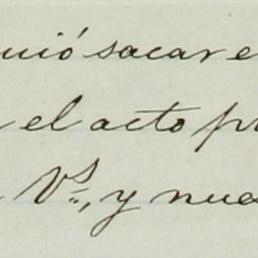 uió sacar e
el acto pr
Vs., y nue